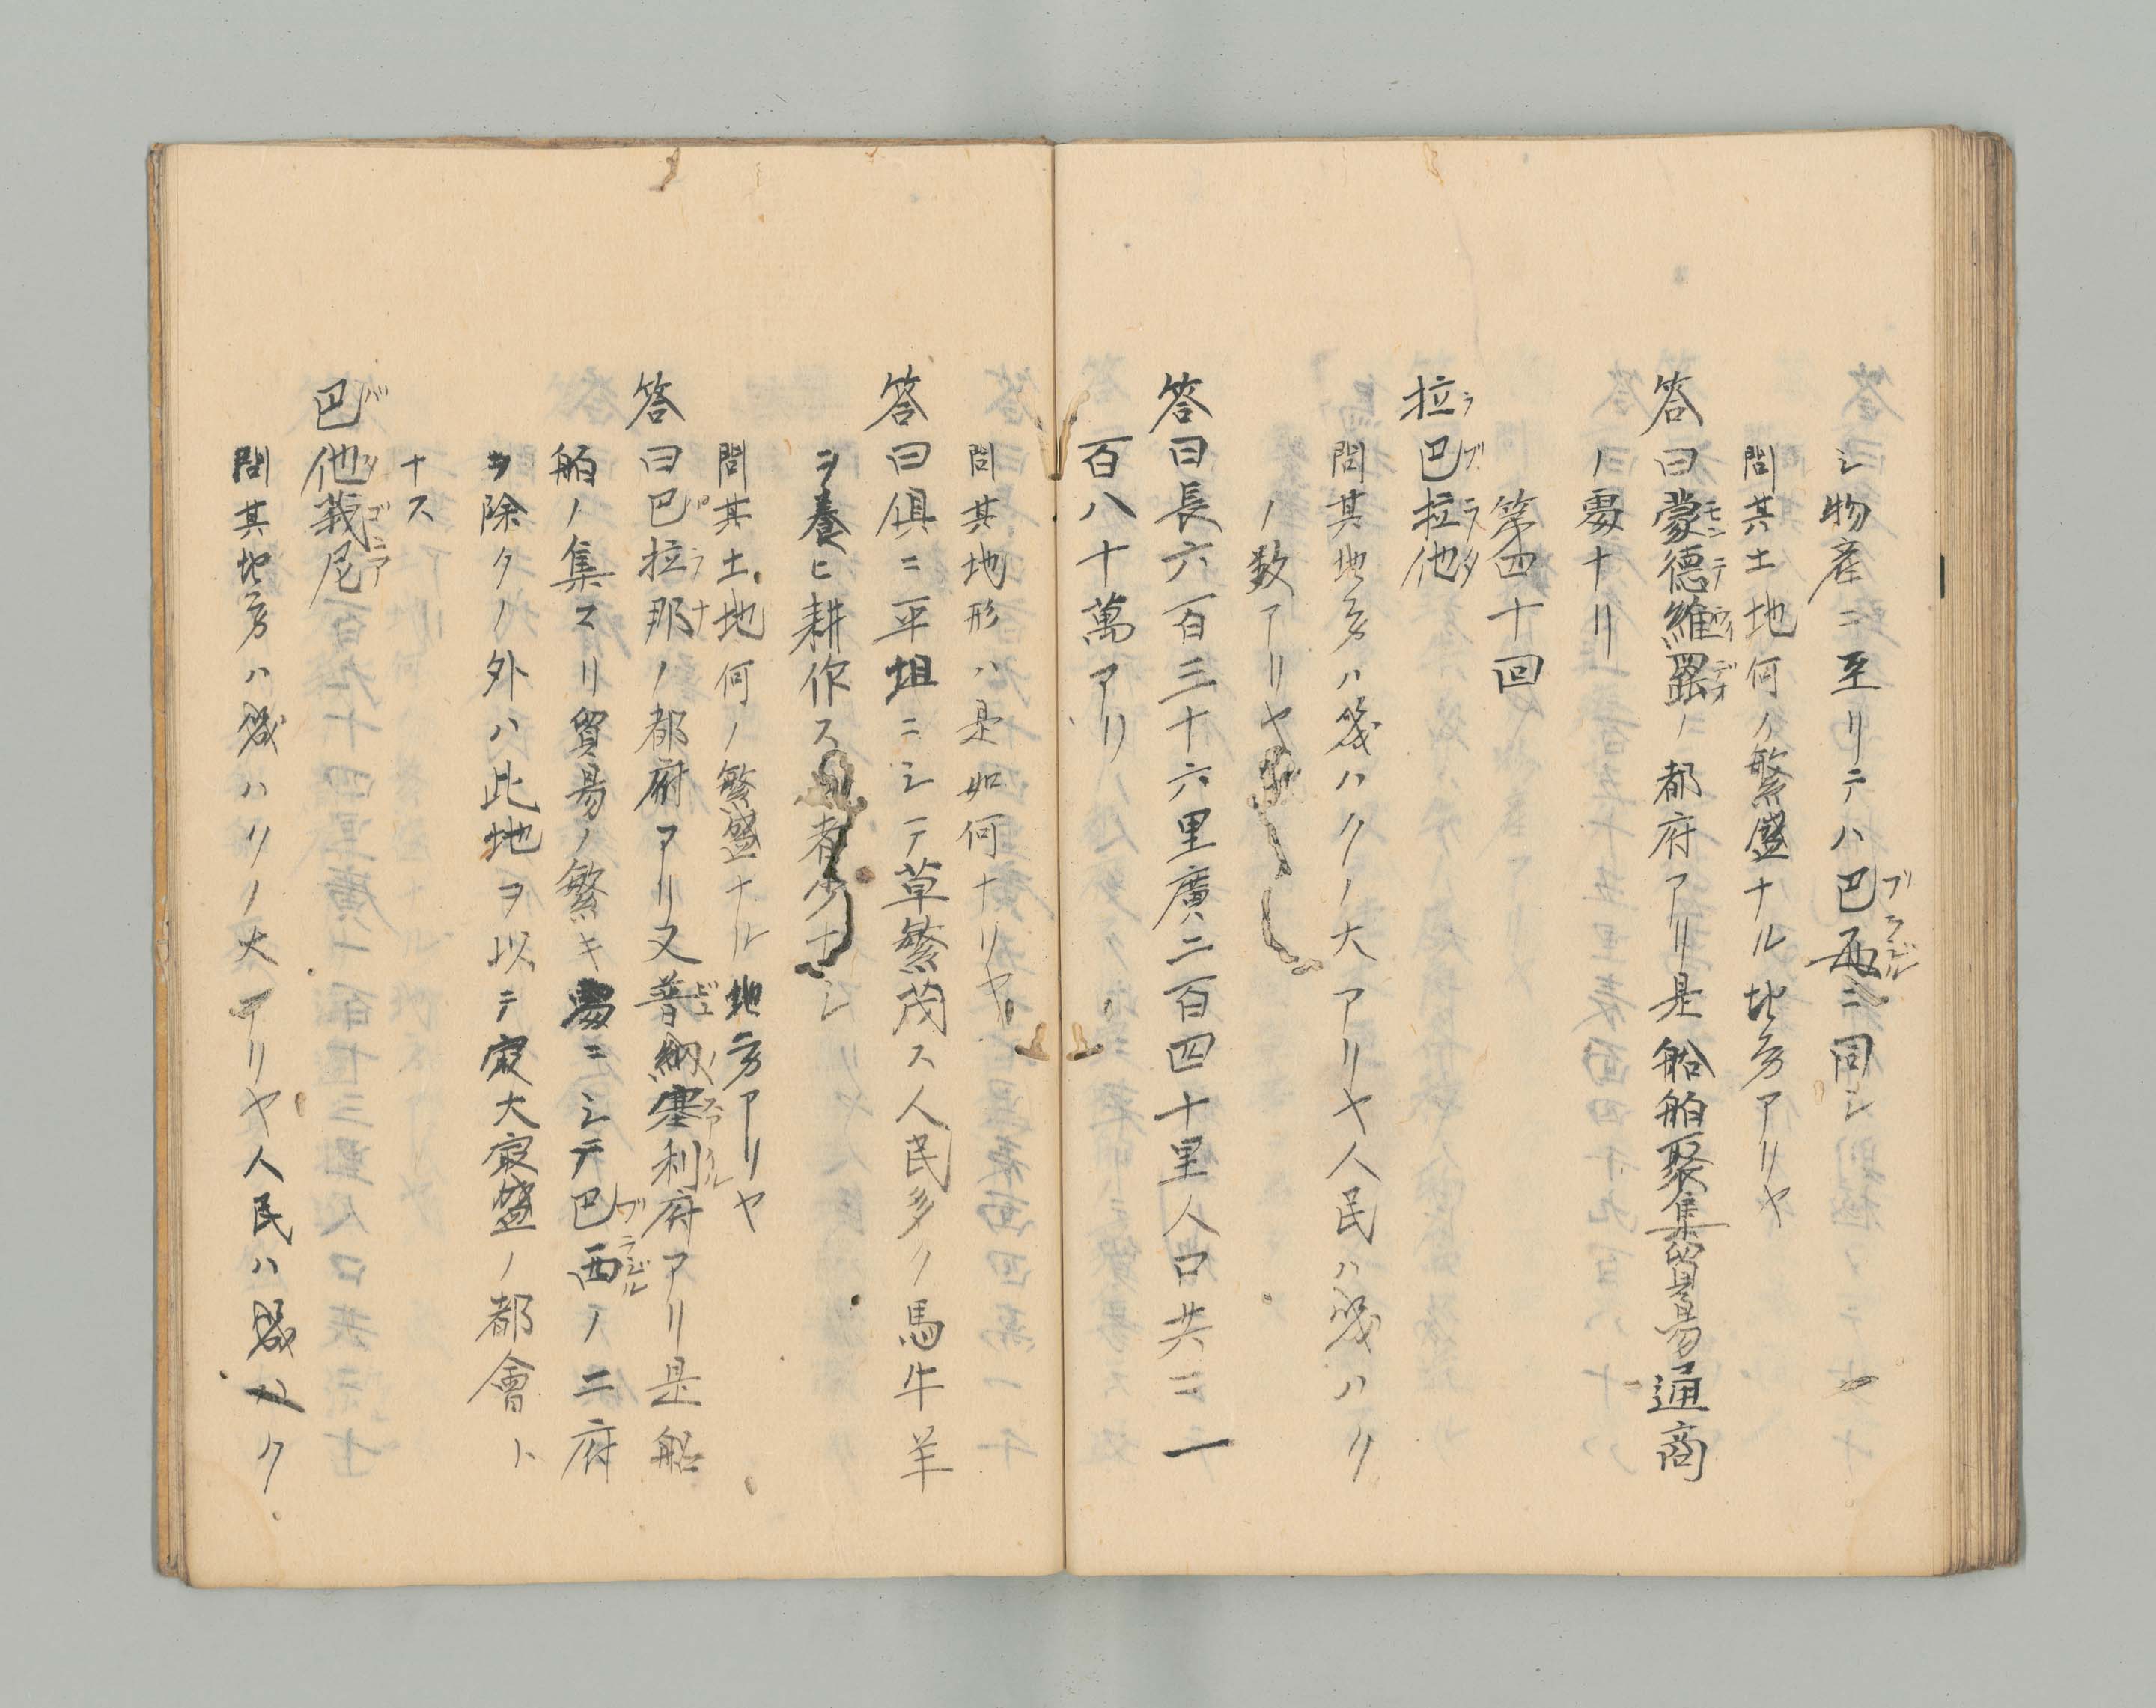 シ物産ニ至リテハ巴西ニ同シ
問其土地何ノ繁盛ナル地方アリヤ
答曰蒙德維羅ノ都府アリ是船舶聚集貿易通商
ノ要ナリ
第四十回
拉巴拉他
問其地方ハ幾ハクノ大アリヤ人民ハ幾ハク
ノ数アリヤ
答曰長六百三十六里廣二百四十里人口共ニ一
百八十萬アリ
問其地形ハ是如何ナリヤ
答曰俱ニ平坦ニシテ草繁茂ス人民多ク馬牛羊
ヲ養ヒ耕作ス 者少ナシ
問其土地何ノ繁盛ナル地方アリヤ
答曰巴拉那ノ都府アリ又普納塞利府アリ是船
舶ノ集マリ貿易ノ繁キ處ニシテ巴西ノ二府
ヲ除クノ外ハ此地ヲ以テ㝡大㝡盛ノ都會ト
ナス
巴他莪尼
問其地方ハ幾ハクノ大アリヤ人民ハ幾ハク